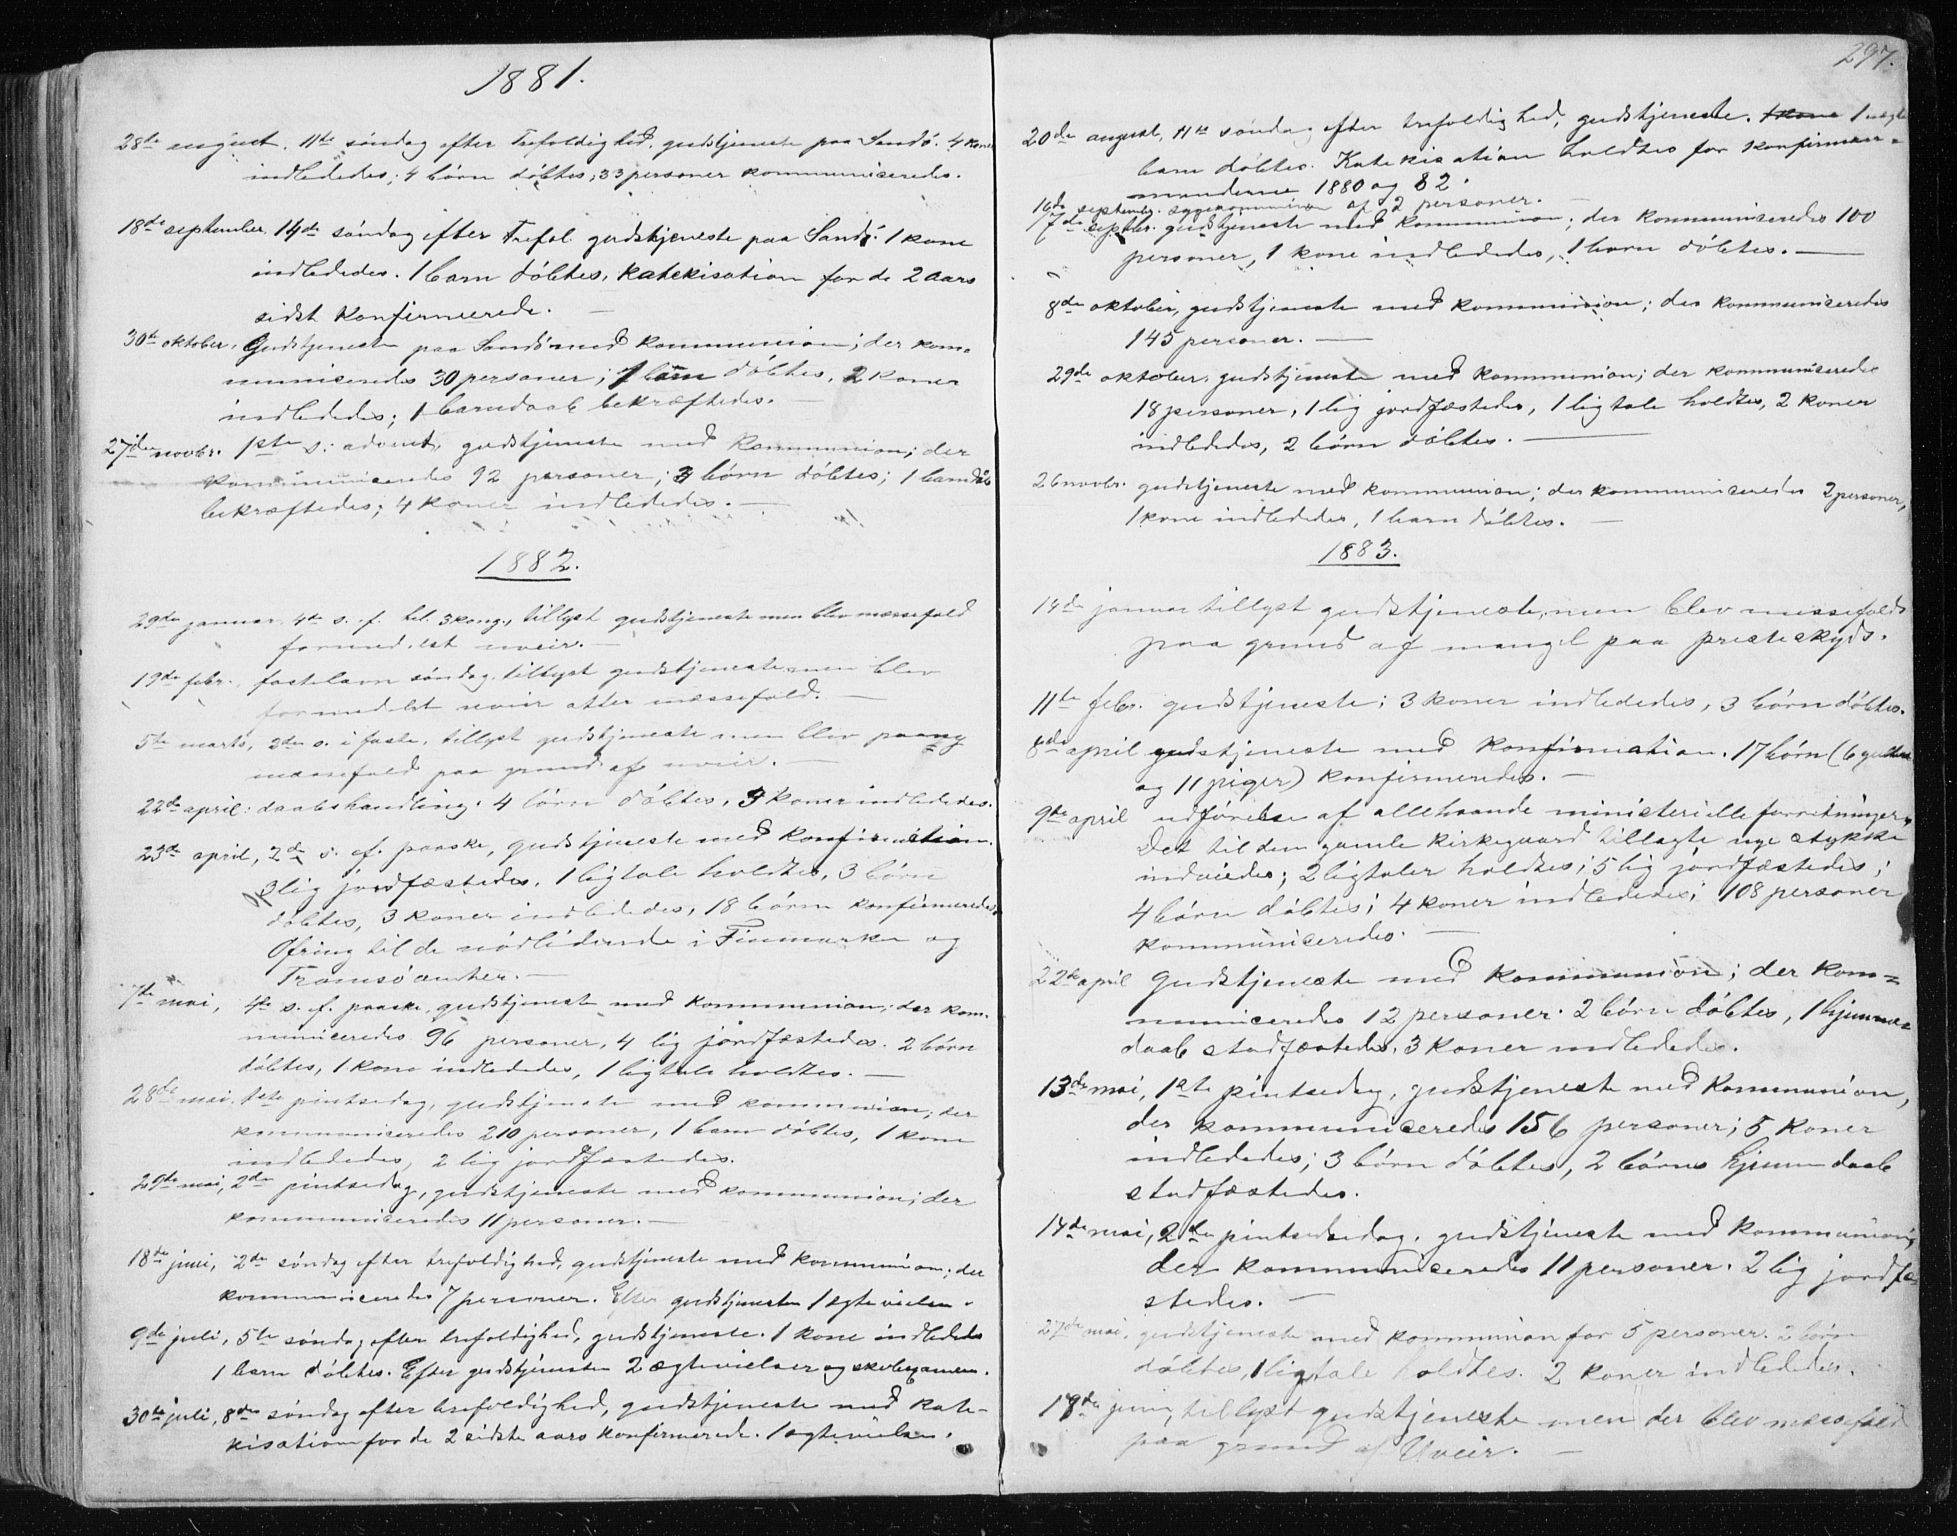 1881.
28de august. 11te söndag efter Trefoldighed. gudstjeneste paa Sandö. 4 koner
indlededes; 4 börn döbtes, 33 personer kommuniceredes.
18de september. 14de söndag efter Trefol. gudstjeneste paa Sandö. 1 kone
indlededes. 1 barn döbtes, katekisation for de 2 aars
sidst konfirmerede. —
30te oktober. Gudstjeneste paa Sandö med kommunion; der kom-
municeredes 30 personer; 1 barn döbtes, 2 koner
indlededes; 1 barnedaab bekræftedes. —
27de novbr. 1ste s. advent, gudstjeneste med kommunion; der
kommuniceredes 92 personer; 3 börn döbtes; 1 barnedåb
bekræftedes; 4 koner indlededes. —
1882.
29de januar. 4de s. f. hel. 3 kong., tillyst gudstjeneste men blev messefald
formedelst uveir. —
19de febr. fastelavn söndag. tillyst gudstjeneste men blev
formedelst uveir atter messefald. —
5te marts, 2den s. i faste, tillyst gudstjeneste men blev paany
messefald paa grund af uveir. —
22de april: daabshandling. 4 börn döbtes, 4 koner indlededes.
23de april, 2de s. ef. paaske, gudstjeneste med konfirmation.
3 lig jordfæstedes, 1 ligtale holdtes, 3 börn
döbtes, 3 koner indlededes, 18 börn konfirmeredes.
Ofring til de nödlidende i Finmarken og
Tromsö amter. —
7de mai, 4de s. f. paaske, gudstjenest med kommunion; der kom-
municeredes 96 personer, 4 lig jordfæstedes. 2 börn
döbtes, 1 kone indlededes, 1 ligtale holdtes. —
28de mai. 1ste pintsedag, gudstjeneste med kommunion; der
kommuniceredes 210 personer, 1 barn döbtes, 1 kone
indlededes, 2 lig jordfæstedes.
29de mai, 2den pintsedag, gudstjeneste med kommunion; der
kommuniceredes 11 personer. —
18de juni, 2de söndag efter trefoldighed, gudstjeneste med kommunion; der
kommuniceredes 7 personer. Efter gudstjenesten 1 ægtevielse.
9de juli, 5te söndag efter trefoldighed, gudstjeneste. 1 kone indlededes
1 barn döbtes. Efter gudstjenesten 2 ægtevielser og skolexamen.
30te juli, 8de söndag efter trefoldighed, gudstjeneste med kate-
kisation for de 2 sidste aars konfirmerede. 1 ægtevielse.
297.
20de august, 11te söndag efter trefoldighed, gudstjeneste. 1 kone 1 uægte
barn döbtes. Katekisation holdtes for konfirmer-
manderne 1880 og 82.
16de september. sygekommunion af 2 personer. —
17de septbr. gudstjeneste med kommunion; der kommuniceredes 100
personer, 1 kone indlededes, 1 barn döbtes. —
8de oktober, gudstjeneste med kommunion; der kommuniceredes
145 personer. —
29de oktober, gudstjeneste med kommunion; der kommuniceredes
18 personer, 1 lig jordfæstedes, 1 ligtale holdtes, 2 koner
indlededes, 2 börn döbtes. —
26 novbr. gudstjeneste med kommunion; der kommuniceredes 2 personer,
1 kone indlededes, 1 barn döbtes. —
1883.
14de januar tillyst gudstjeneste, men blev messefald
paa grund af mangel paa presteskyds.
11te febr. gudstjeneste; 3 koner indlededes, 3 börn döbtes.
8de april gudstjeneste med konfirmation. 17 börn (6 gutter
og 11 piger) konfirmeredes. —
9de april udförelse af allehaande ministerielle forretninger.
Det til den gamle kirkegaard tillagte nye stykke
indviedes; 2 ligtaler holdtes; 5 lig jordfæstedes;
4 börn döbtes; 4 koner indlededes; 108 personer
kommuniceredes. —
22de april Gudstjeneste med kommunion; der kom-
municeredes 12 personer. 2 börn döbtes, 1 hjemme-
daab stadfæstedes, 3 koner indlededes.
13de mai, 1ste pintsedag, gudstjeneste med kommunion,
der kommuniceredes 156 personer; 5 koner
indlededes; 3 börn döbtes, 2 börns hjemmedaab
stadfæstedes.
14de mai, 2den pintsedag, gudstjeneste med kommunion;
der kommuniceredes 11 personer. 2 lig jordfæ-
stedes. —
27de mai, gudstjeneste med kommunion for 5 personer. 2 börn
döbtes, 1 ligtale holdtes. 2 koner indlededes.
juni, tillyst gudstjeneste men der blev messefald
paa grund af Uveir. —